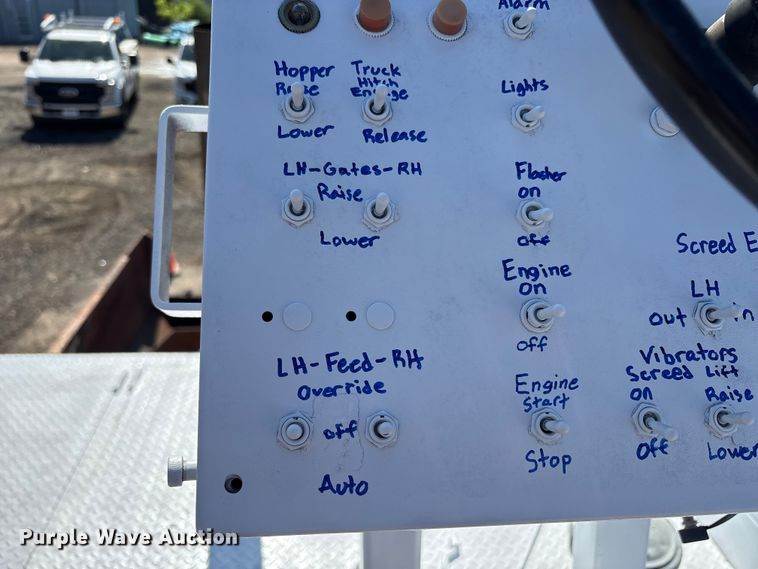 Alarm
Hopper
Raise
Lower
Truck
Hitch
Engage
Release
Lights
LH-Gates-RH
Raise
Lower
Flasher
on
off
Screed E
Engine
On
off
LH
out
in
LH-Feed-RH
Override
off
Auto
Engine
Start
Stop
Vibrators
Screed Lift
on
Off
Raise
Lower
Purple Wave Auction